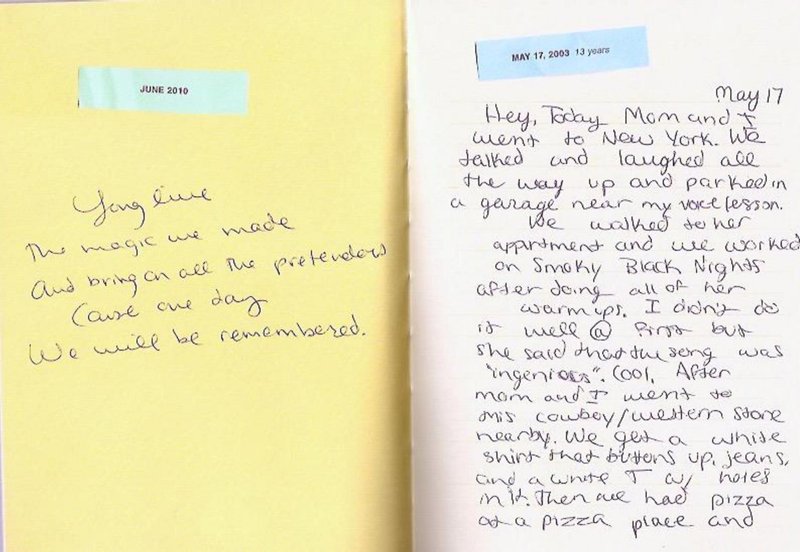 JUNE 2010
Long live
The magic we made
And bring on all the pretenders
Cause one day
We will be remembered.
MAY 17, 2003 13 years
May 17
Hey, Today Mom and I
went to New York. We
talked and laughed all
the way up and parked in
a garage near my voice lesson.
We walked to her
appartment and we worked
on Smoky Black Nights
after doing all of her
warm ups. I didn't do
it well @ first but
she said that the song was
"ingenious". Cool. After
mom and I went to
this cowboy/western store
nearby. We get a white
shirt that buttons up, jeans,
and a white T w/ holes
in it. Then we had pizza
at a pizza place and